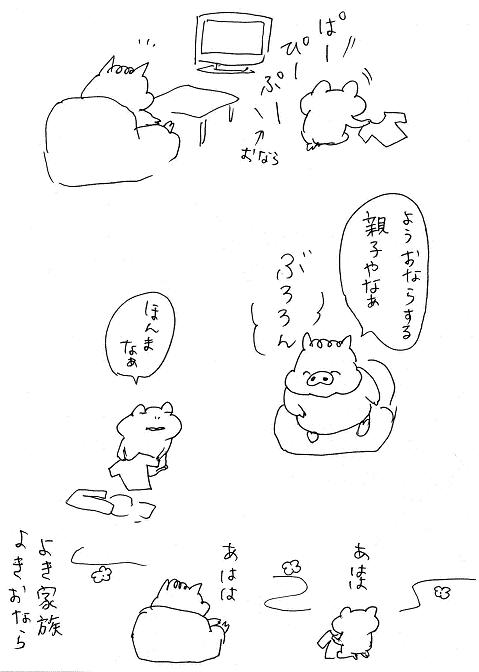 ぱー
ぴー
ぷぃー
おなら
ようおならする
親子やなぁ
ぶろろん
ほんま
なぁ
あはは
あはは
よき家族
よきおなら